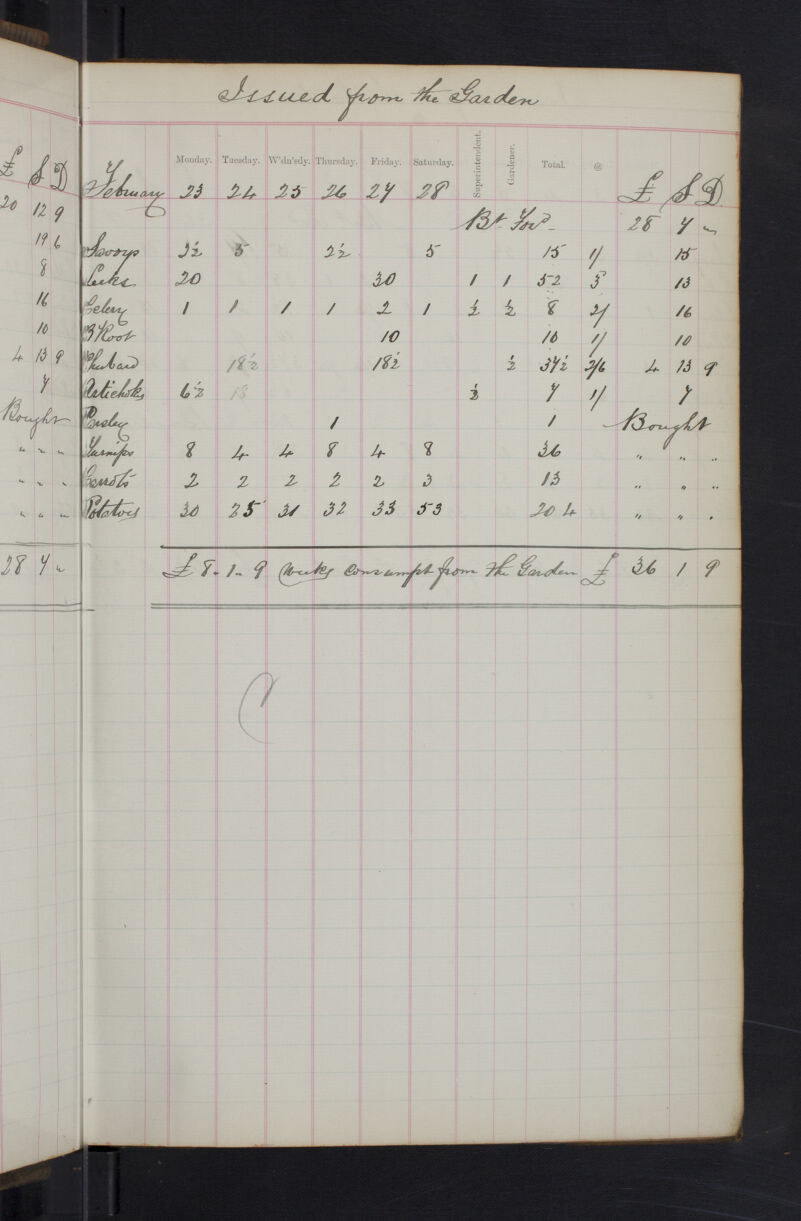 £ S D
20 12 9
19 6
8
16
10
4 13 9
7
Bought
" " "
" " "
" " "
28 7 "
Issued from the Garden
Monday. Tuesday. W'dn'sdy. Thursday. Friday. Saturday. Superintendent. Gardener. Total. @
February 23 24 25 26 27 28 £ S D
Bt. Ford 28 7 "
Savoys 2½ 5 2½ 5 15 1/ 15
Leeks 20 30 1 1 52 3 13
Celery 1 1 1 1 2 1 ½ ½ 8 2/ 16
B Root 10 10 1/ 10
Rhubard 18½ 18½ ½ 37½ 2/6 4 13 9
Artichoks 6½ 13 ½ 7 1/ 7
Parsley 1 1 Bought
Turnips 8 4 4 8 4 8 36 " " "
Carrots 2 2 2 2 2 3 13 " " "
Potatoes 30 25 31 32 33 53 204 " " "
£ 8 " 1 " 9 Weeks consumpt from the Garden £ 36 1 9